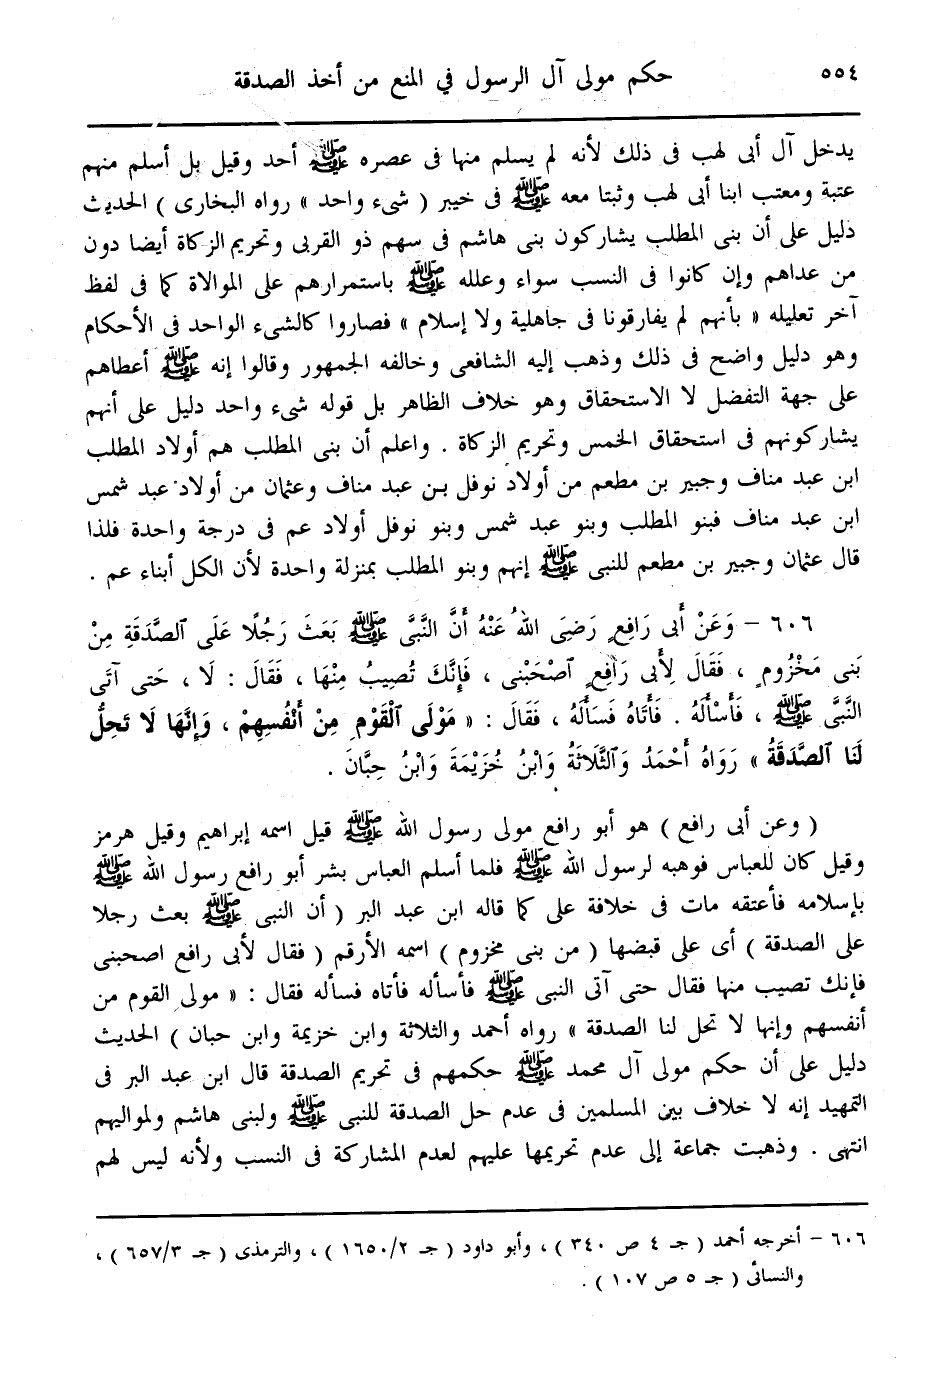 ٥٥٤ حكم مولى آل الرسول في المنع من أخذ الصدقة
يدخل آل أبى لهب فى ذلك لأنه لم يسلم منها فى عصره ﷺ أحد وقيل بل أسلم منهم
عتبة ومعتب ابنا أبى لهب وثبتا معه ﷺ فى خيبر ( شىء واحد » رواه البخارى ) الحديث
دليل على أن بنى المطلب يشاركون بنى هاشم فى سهم ذو القربى وتحريم الزكاة أيضا دون
من عداهم وإن كانوا فى النسب سواء وعلله ﷺ باستمرارهم على الموالاة كما فى لفظ
آخر تعليله « بأنهم لم يفارقونا فى جاهلية ولا إسلام » فصاروا كالشىء الواحد فى الأحكام
وهو دليل واضح فى ذلك وذهب إليه الشافعى وخالفه الجمهور وقالوا إنه ﷺ أعطاهم
على جهة التفضل لا الاستحقاق وهو خلاف الظاهر بل قوله شىء واحد دليل على أنهم
يشاركونهم فى استحقاق الخمس وتحريم الزكاة . واعلم أن بنى المطلب هم أولاد المطلب
ابن عبد مناف وجبير بن مطعم من أولاد نوفل بن عبد مناف وعثمان من أولاد عبد شمس
ابن عبد مناف فبنو المطلب وبنو عبد شمس وبنو نوفل أولاد عم فى درجة واحدة فلذا
قال عثمان وجبير بن مطعم للنبى ﷺ إنهم وبنو المطلب بمنزلة واحدة لأن الكل أبناء عم .
٦٠٦ - وَعَنْ أَبى رَافِعٍ رَضىَ اللهُ عَنْهُ أَنَّ النَّبىَّ ﷺ بَعَثَ رَجُلًا عَلَى ٱلصَّدَقَةِ مِنْ
بَنى مَخْزُومٍ ، فَقَالَ لِأَبى رَافِعٍ ٱصْحَبْنى ، فَإِنَّكَ تُصِيبُ مِنْهَا ، فَقَالَ : لَا ، حَتى آتَى
النَّبىَّ ﷺ ، فَأَسْأَلَهُ . فَأَتَاهُ فَسَأَلَهُ ، فَقَالَ : « مَوْلَى ٱلْقَوْمِ مِنْ أَنْفُسِهِمْ ، وَإِنَّهَا لَا تَحِلُّ
لَنَا ٱلصَّدَقَةُ » رَوَاهُ أَحْمَدُ وَٱلثَّلَاثَةُ وَابْنُ خُزَيْمَةَ وَابْنُ حِبَّانَ .
( وعن أبى رافع ) هو أبو رافع مولى رسول الله ﷺ قيل اسمه إبراهيم وقيل هرمز
وقيل كان للعباس فوهبه لرسول الله ﷺ فلما أسلم العباس بشر أبو رافع رسول الله ﷺ
بإسلامه فأعتقه مات فى خلافة على كما قاله ابن عبد البر ( أن النبى ﷺ بعث رجلا
على الصدقة ) أى على قبضها ( من بنى مخزوم ) اسمه الأرقم ( فقال لأبى رافع اصحبنى
فإنك تصيب منها فقال حتى آتى النبى ﷺ فأسأله فأتاه فسأله فقال : « مولى القوم من
أنفسهم وإنها لا تحل لنا الصدقة » رواه أحمد والثلاثة وابن خزيمة وابن حبان ) الحديث
دليل على أن حكم مولى آل محمد ﷺ حكمهم فى تحريم الصدقة قال ابن عبد البر فى
التمهيد إنه لا خلاف بين المسلمين فى عدم حل الصدقة للنبى ﷺ ولبنى هاشم ولمواليهم
انتهى . وذهبت جماعة إلى عدم تحريمها عليهم لعدم المشاركة فى النسب ولأنه ليس لهم
٦٠٦ - أخرجه أحمد ( جـ ٤ ص ٣٤٠ ) ، وأبو داود ( جـ ١٦٥٠/٢ ) ، والترمذى ( جـ ٦٥٧/٣ ) ،
والنسائى ( جـ ٥ ص ١٠٧ ) .